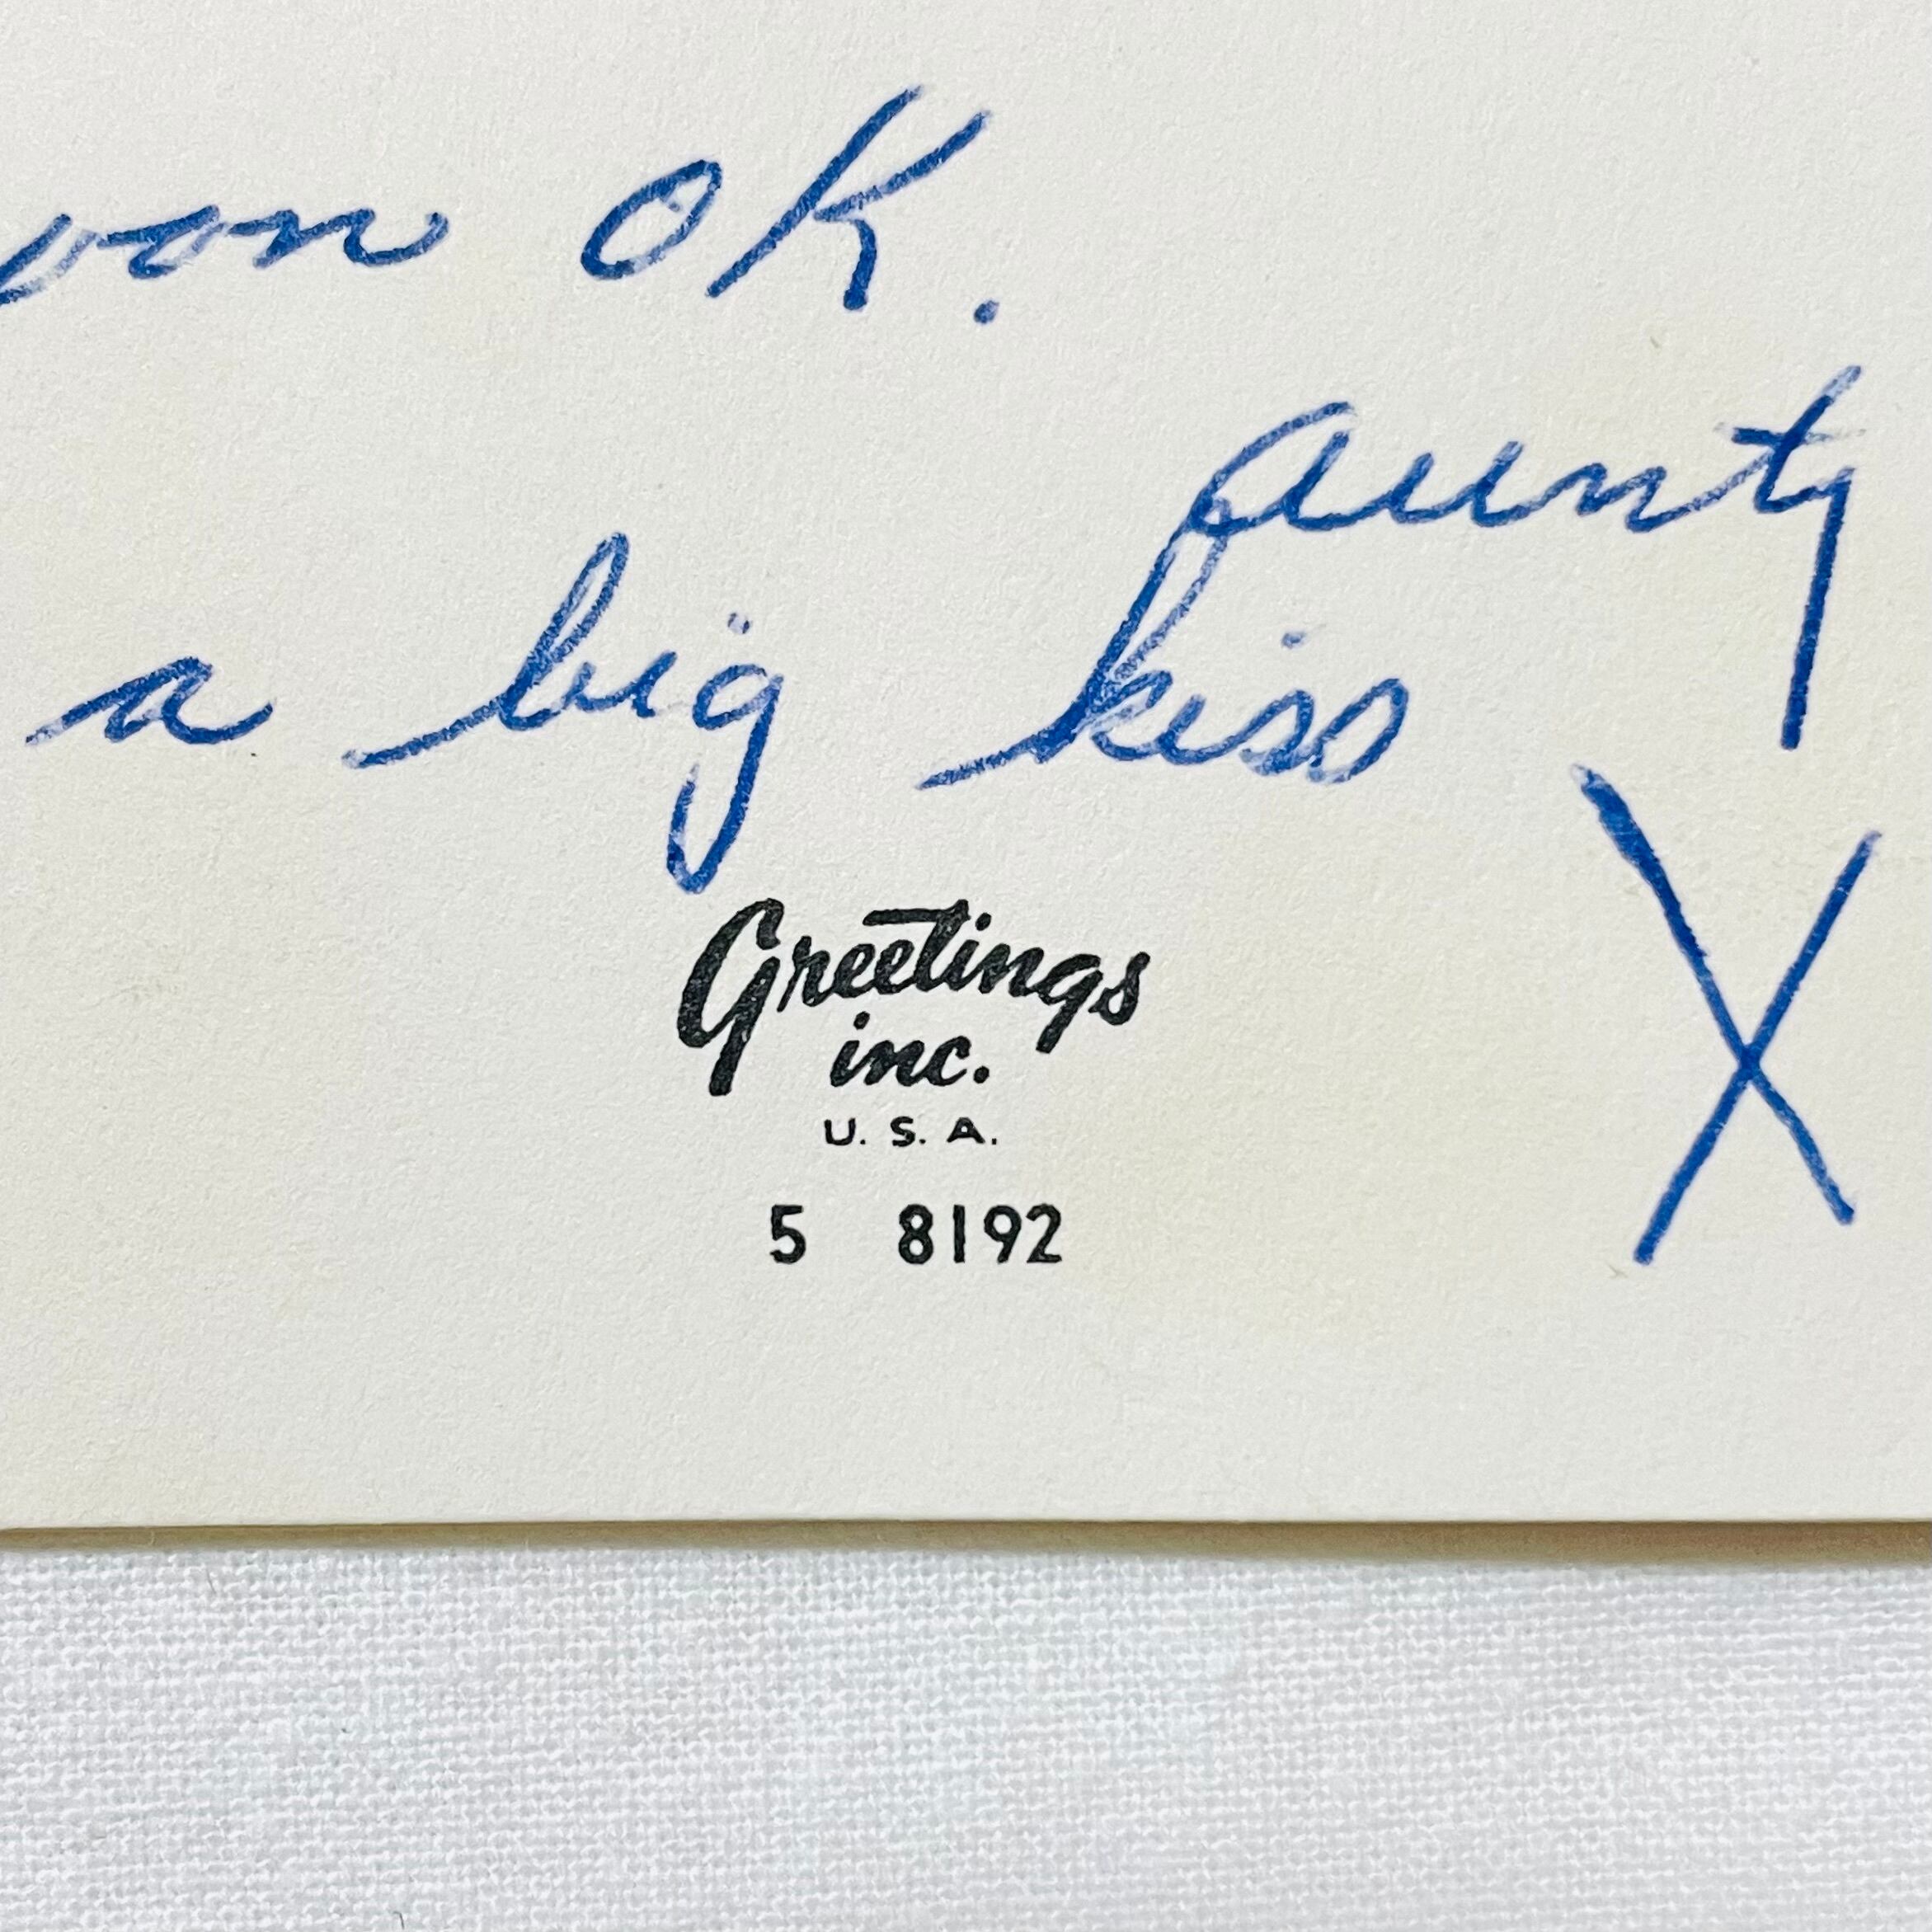 OK.
aunty
a big kiss
X
Greetings
inc.
U. S. A.
5 8192